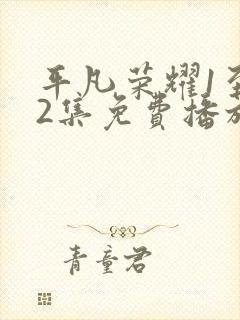 平凡荣耀1至
2集免費播放
青童君